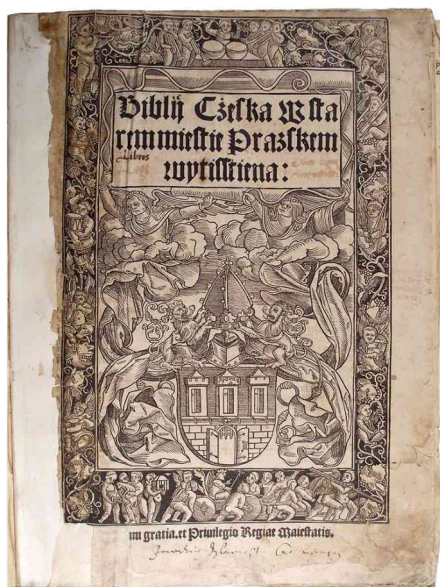 Biblij Cżeſka W ſta
rem mieſtie Prażſkem
Libros
wytiſſtiena:
um gratia. et Priuilegio Regiae Maieſtatis.